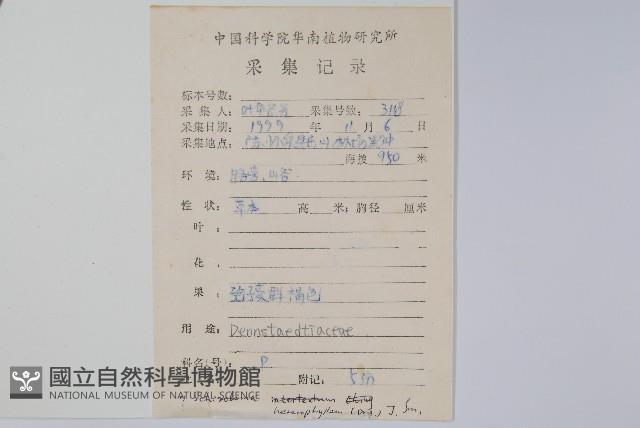 中国科学院华南植物研究所
采集记录
标本号数:
采集人: 叶华谷 采集号数: 3169
采集日期: 1999 年 11 月 6 日
采集地点:
海拔 950 米
环境: 山谷.
性状: 草本 高 米; 胸径 厘米
叶:
花
果: 孢子囊群 褐色
用途: Dennstaedtiaceae
科名(号): P
附记: 5m
國立自然科學博物館
NATIONAL MUSEUM OF NATURAL SCIENCE
intertextum Ching
heterophyllum J. Sm.